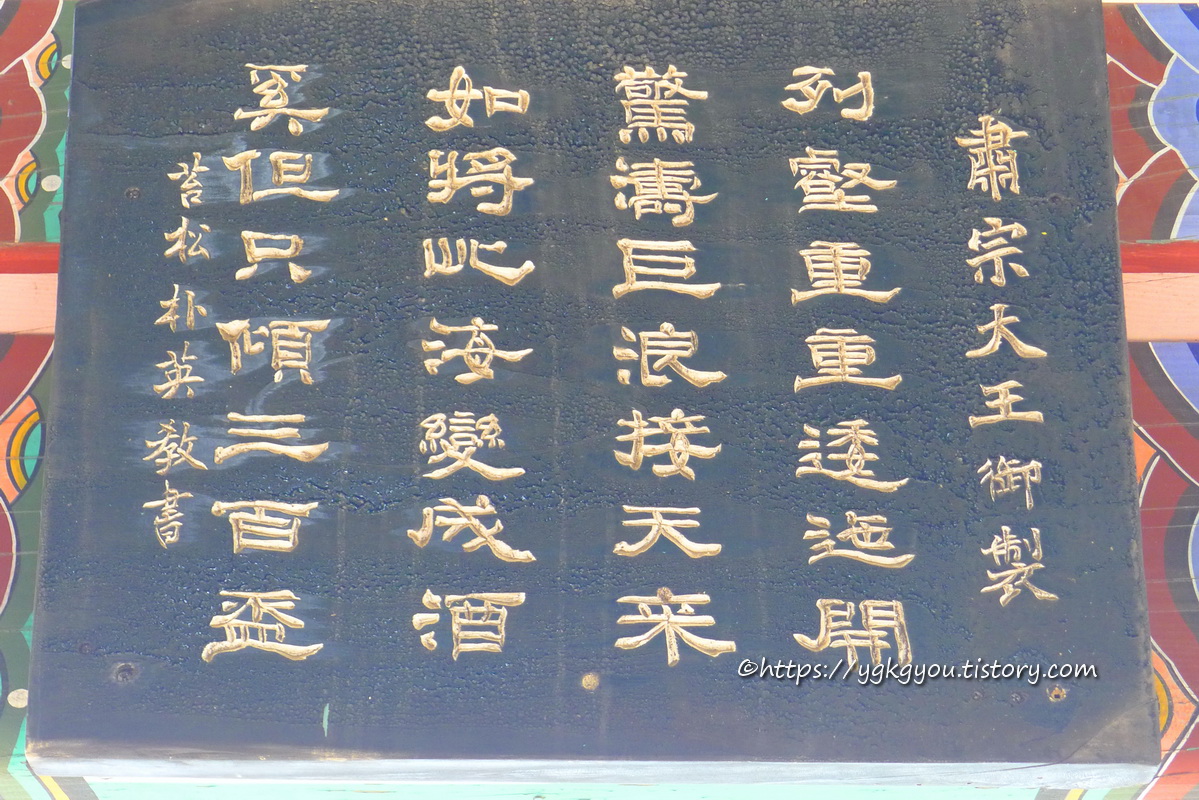 肅宗大王御製
列壑重重逶迤開
驚濤巨浪接天来
如將此海變成酒
奚但只傾三百盃
苔松朴英教書
©https://ygkgyou.tistory.com